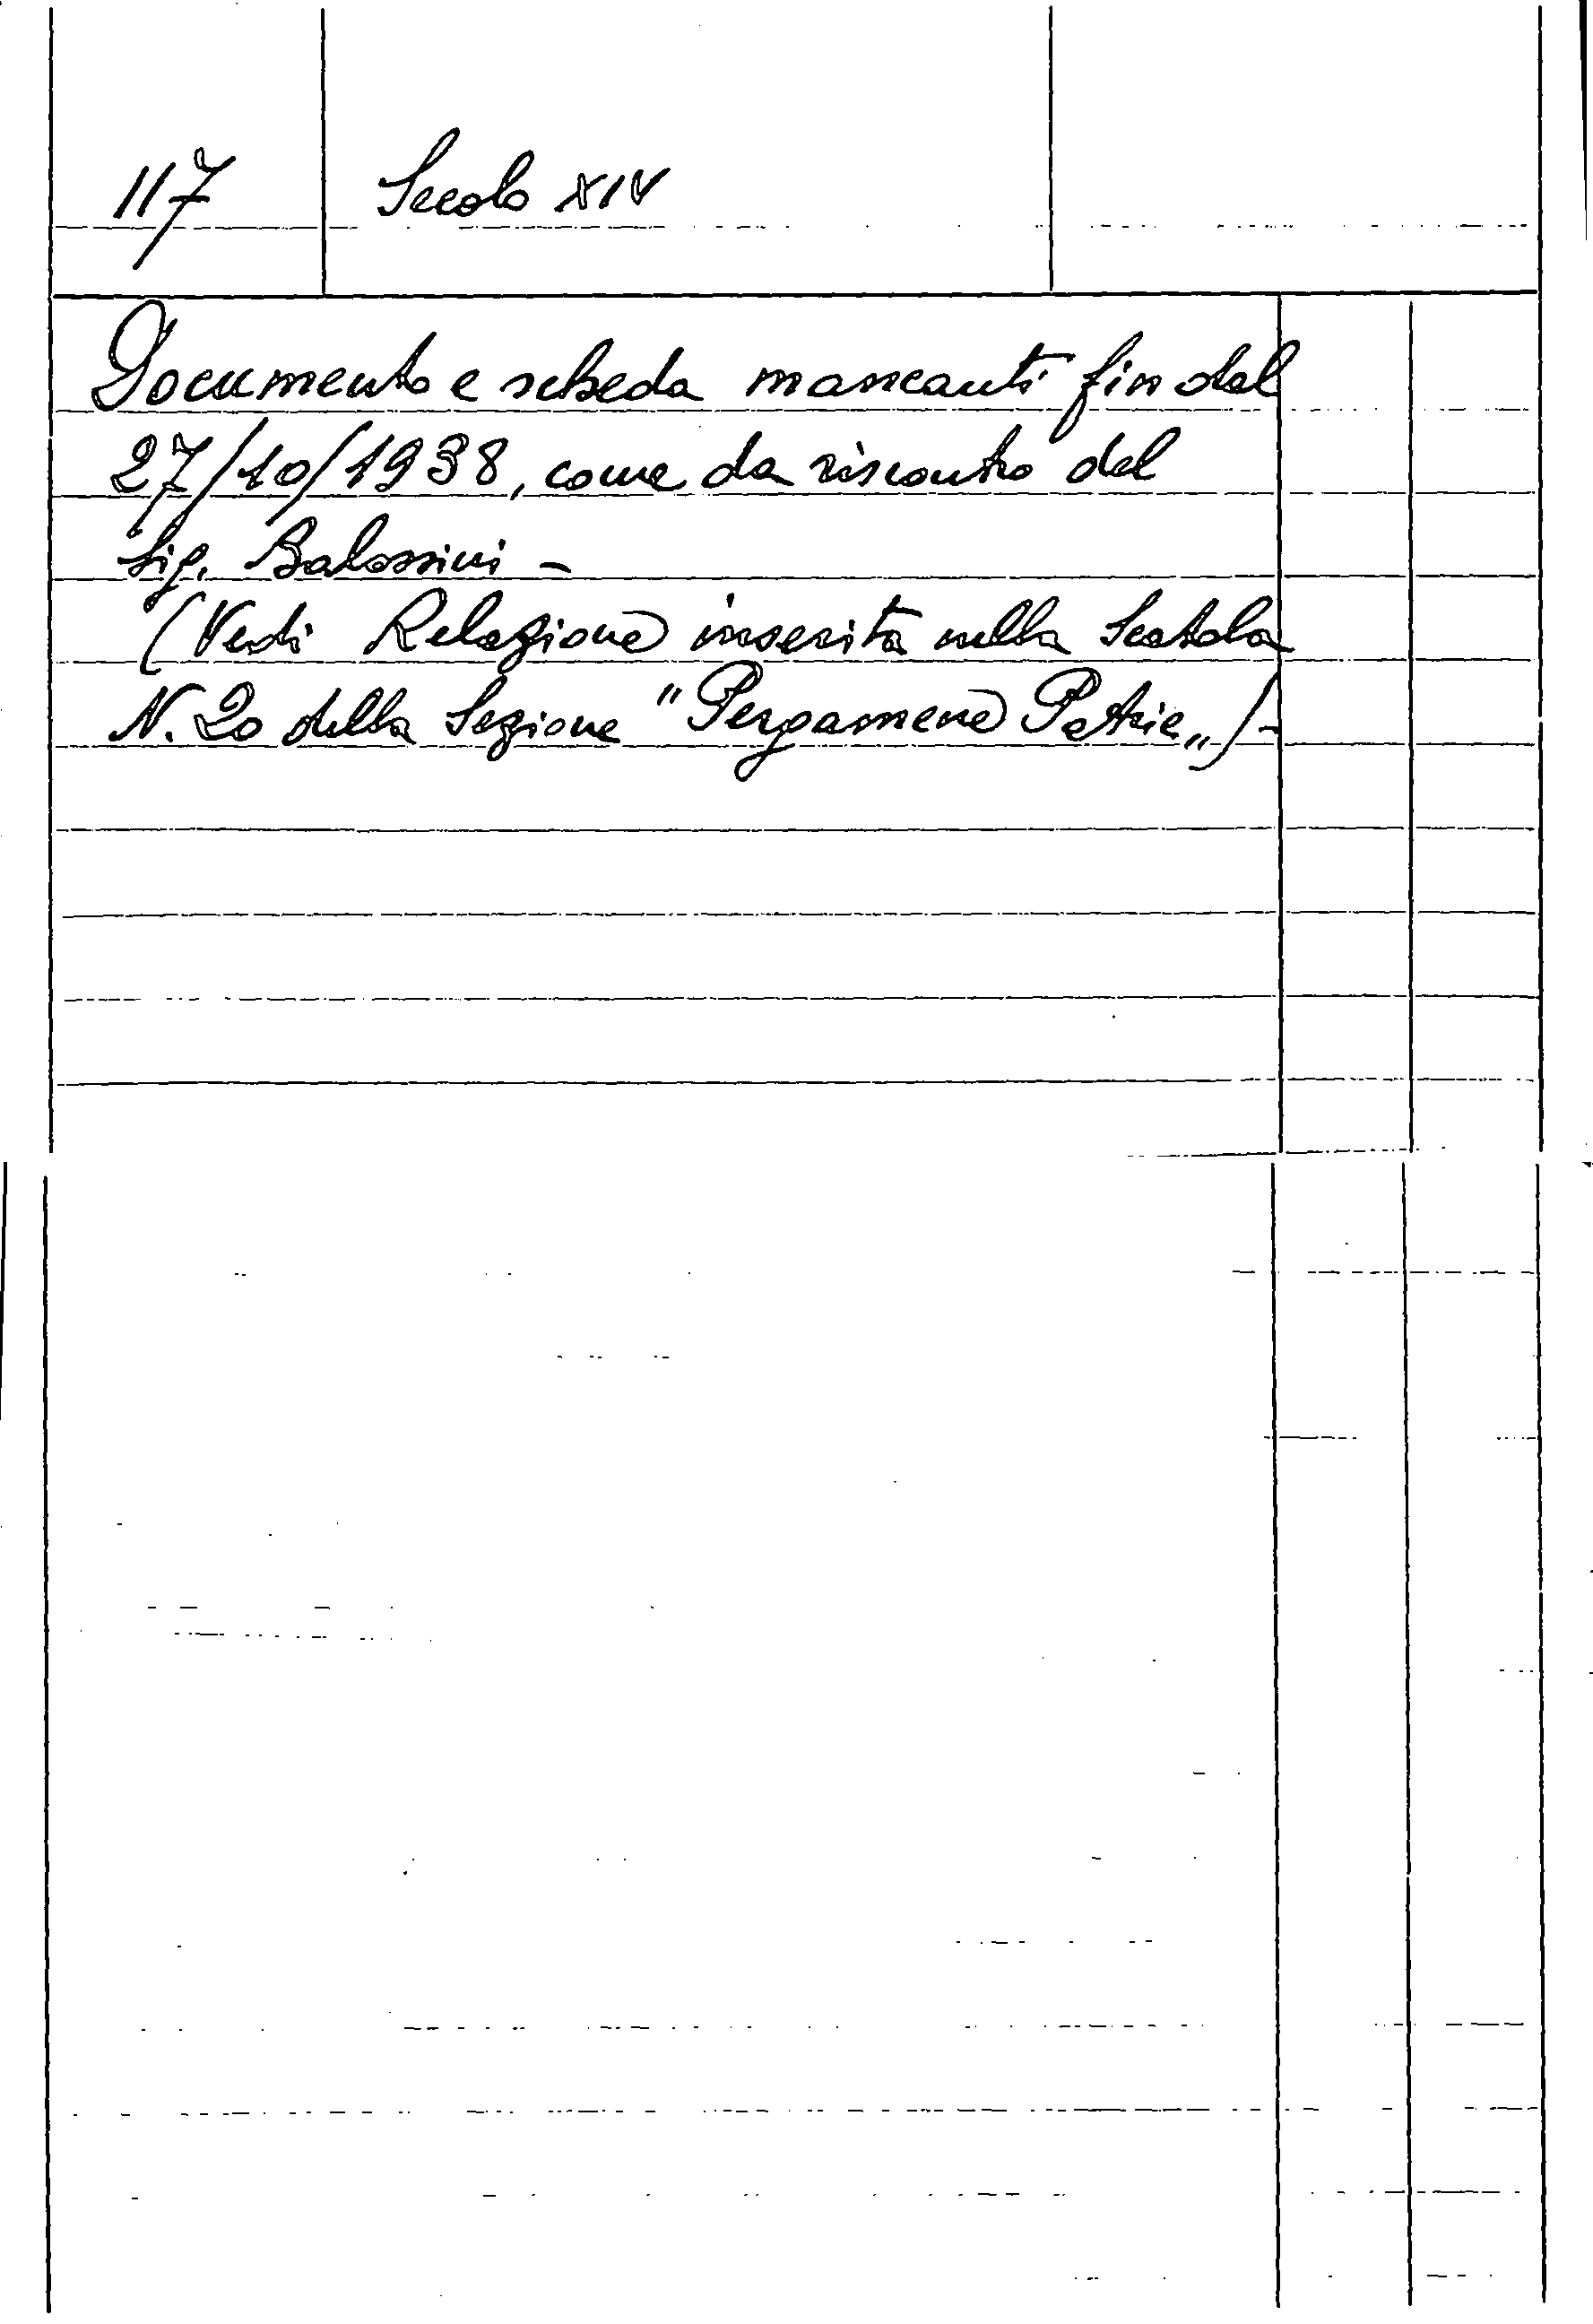 117 Secolo XIV
Documento e scheda mancanti fin dal
27/10/1938, come da riscontro del
Sig. Balossini -
(Vedi Relazione inserita nella Scatola
N. 20 della Sezione "Pergamene Patrie„)-